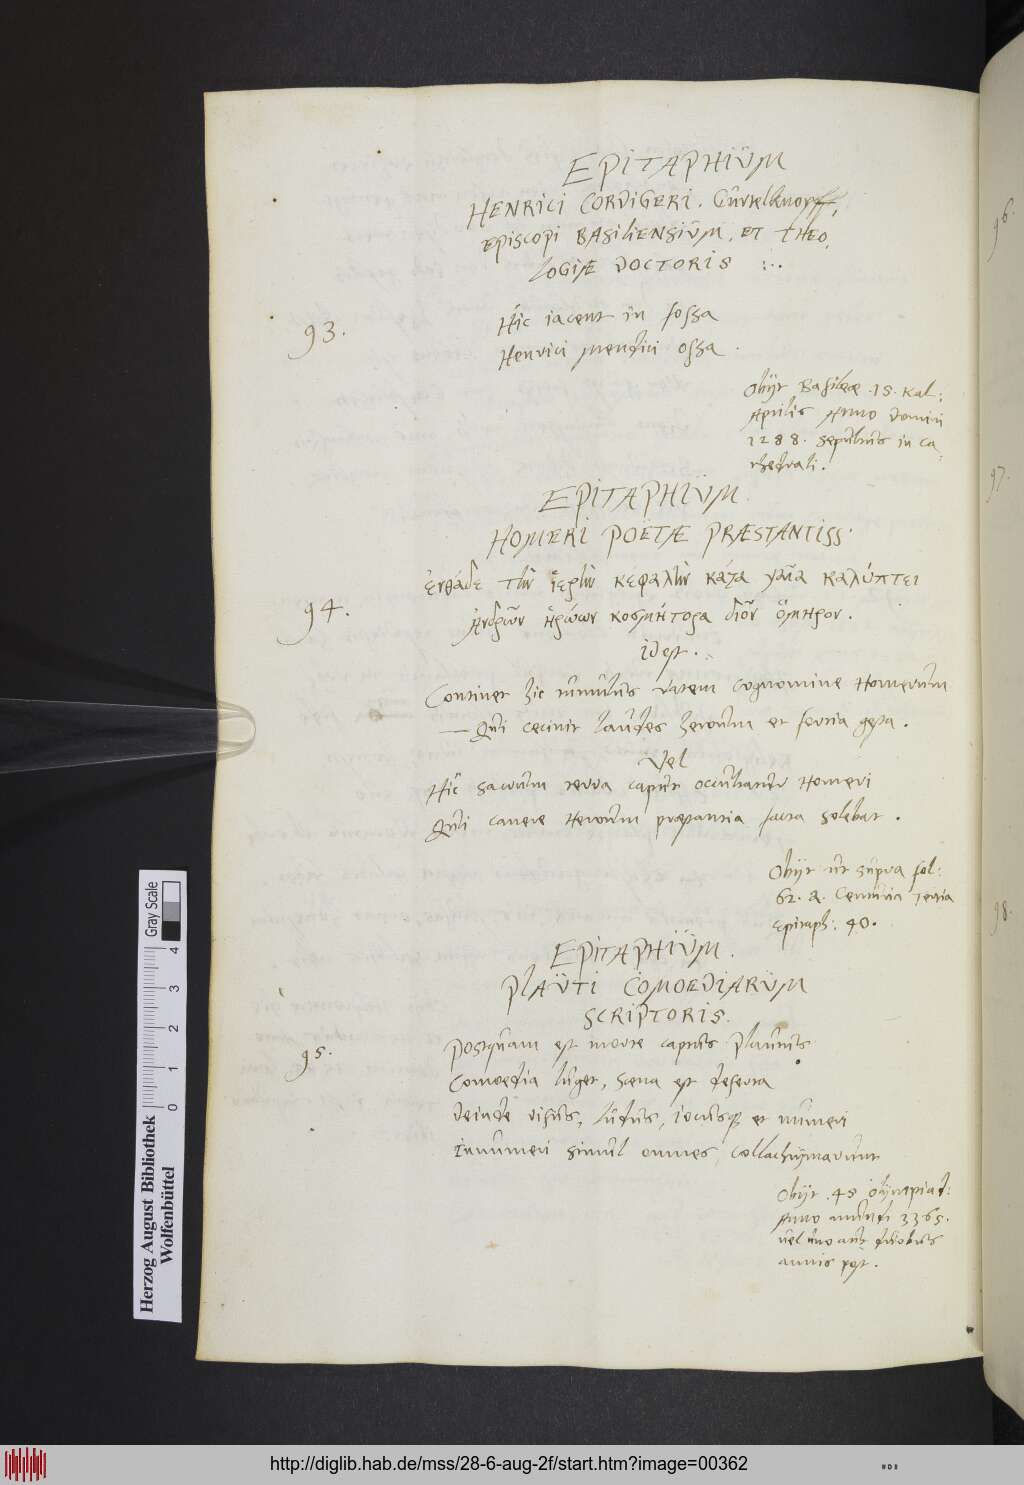 EPITAPHIUM
HENRICI CORDIGERI. Gürtelknopff,
EPISCOPI BASILIENSIUM, ET THEO,
LOGIÆ DOCTORIS :..
93.
Hic iacent in fossa
Henrici mendici ossa.
Obijt Basileæ .15. Kal:
Aprilis Anno Domini
1288. sepultus in ca,
thedrali.
EPITAPHIUM.
HOMERI POETÆ PRÆSTANTISS.
94.
ἐνθάδε τὴν ἱερὴν κεφαλὴν κάτα γαῖα καλύπτει
ἀνδρῶν ἡρώων κοσμήτορα δῖον ὅμηρον.
idest.
Continet hic tumulus vatem cognomine Homerum
— Qui cecinit laudes heroum et fortia gesta.
Vel
Hic sacrum terra caput occultatur Homeri
Qui canere Heroum præstantia facta solebat.
Obijt ut supra fol:
62. a. Centuria Tertia
Epitaph: 40.
EPITAPHIUM.
PLAUTI COMOEDIARUM
SCRIPTORIS.
95.
Postquam est morte captus Plautus
Comoedia luget, scena est deserta
Deinde risus, ludus, iocusq et numeri
Innumeri simul omnes collachrymarunt
Obijt .145 Olympiad:
Anno mundi 3365.
vel uno aut duobus
annis post.
96.
97.
98.
Gray Scale
0 1 2 3 4
Herzog August Bibliothek
Wolfenbüttel
http://diglib.hab.de/mss/28-6-aug-2f/start.htm?image=00362